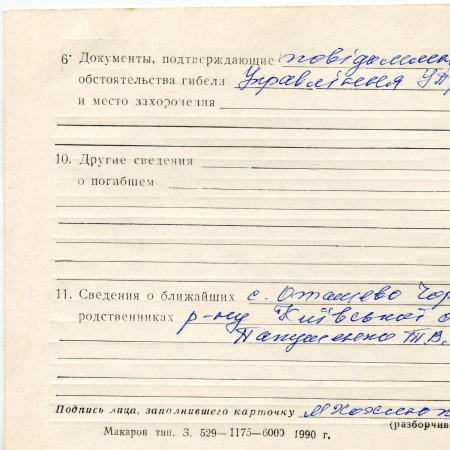 6· Документы, подтверждающие повідомлен
обстоятельства гибели Управління
и место захоронения
10. Другие сведения
о погибшем
11. Сведения о ближайших с. Оташево Чор
родственниках р-ну Київської о
Т.В.
Подпись лица, заполнившего карточку
(разборчив
Макаров тип. З. 529—1175—6000 1990 г.